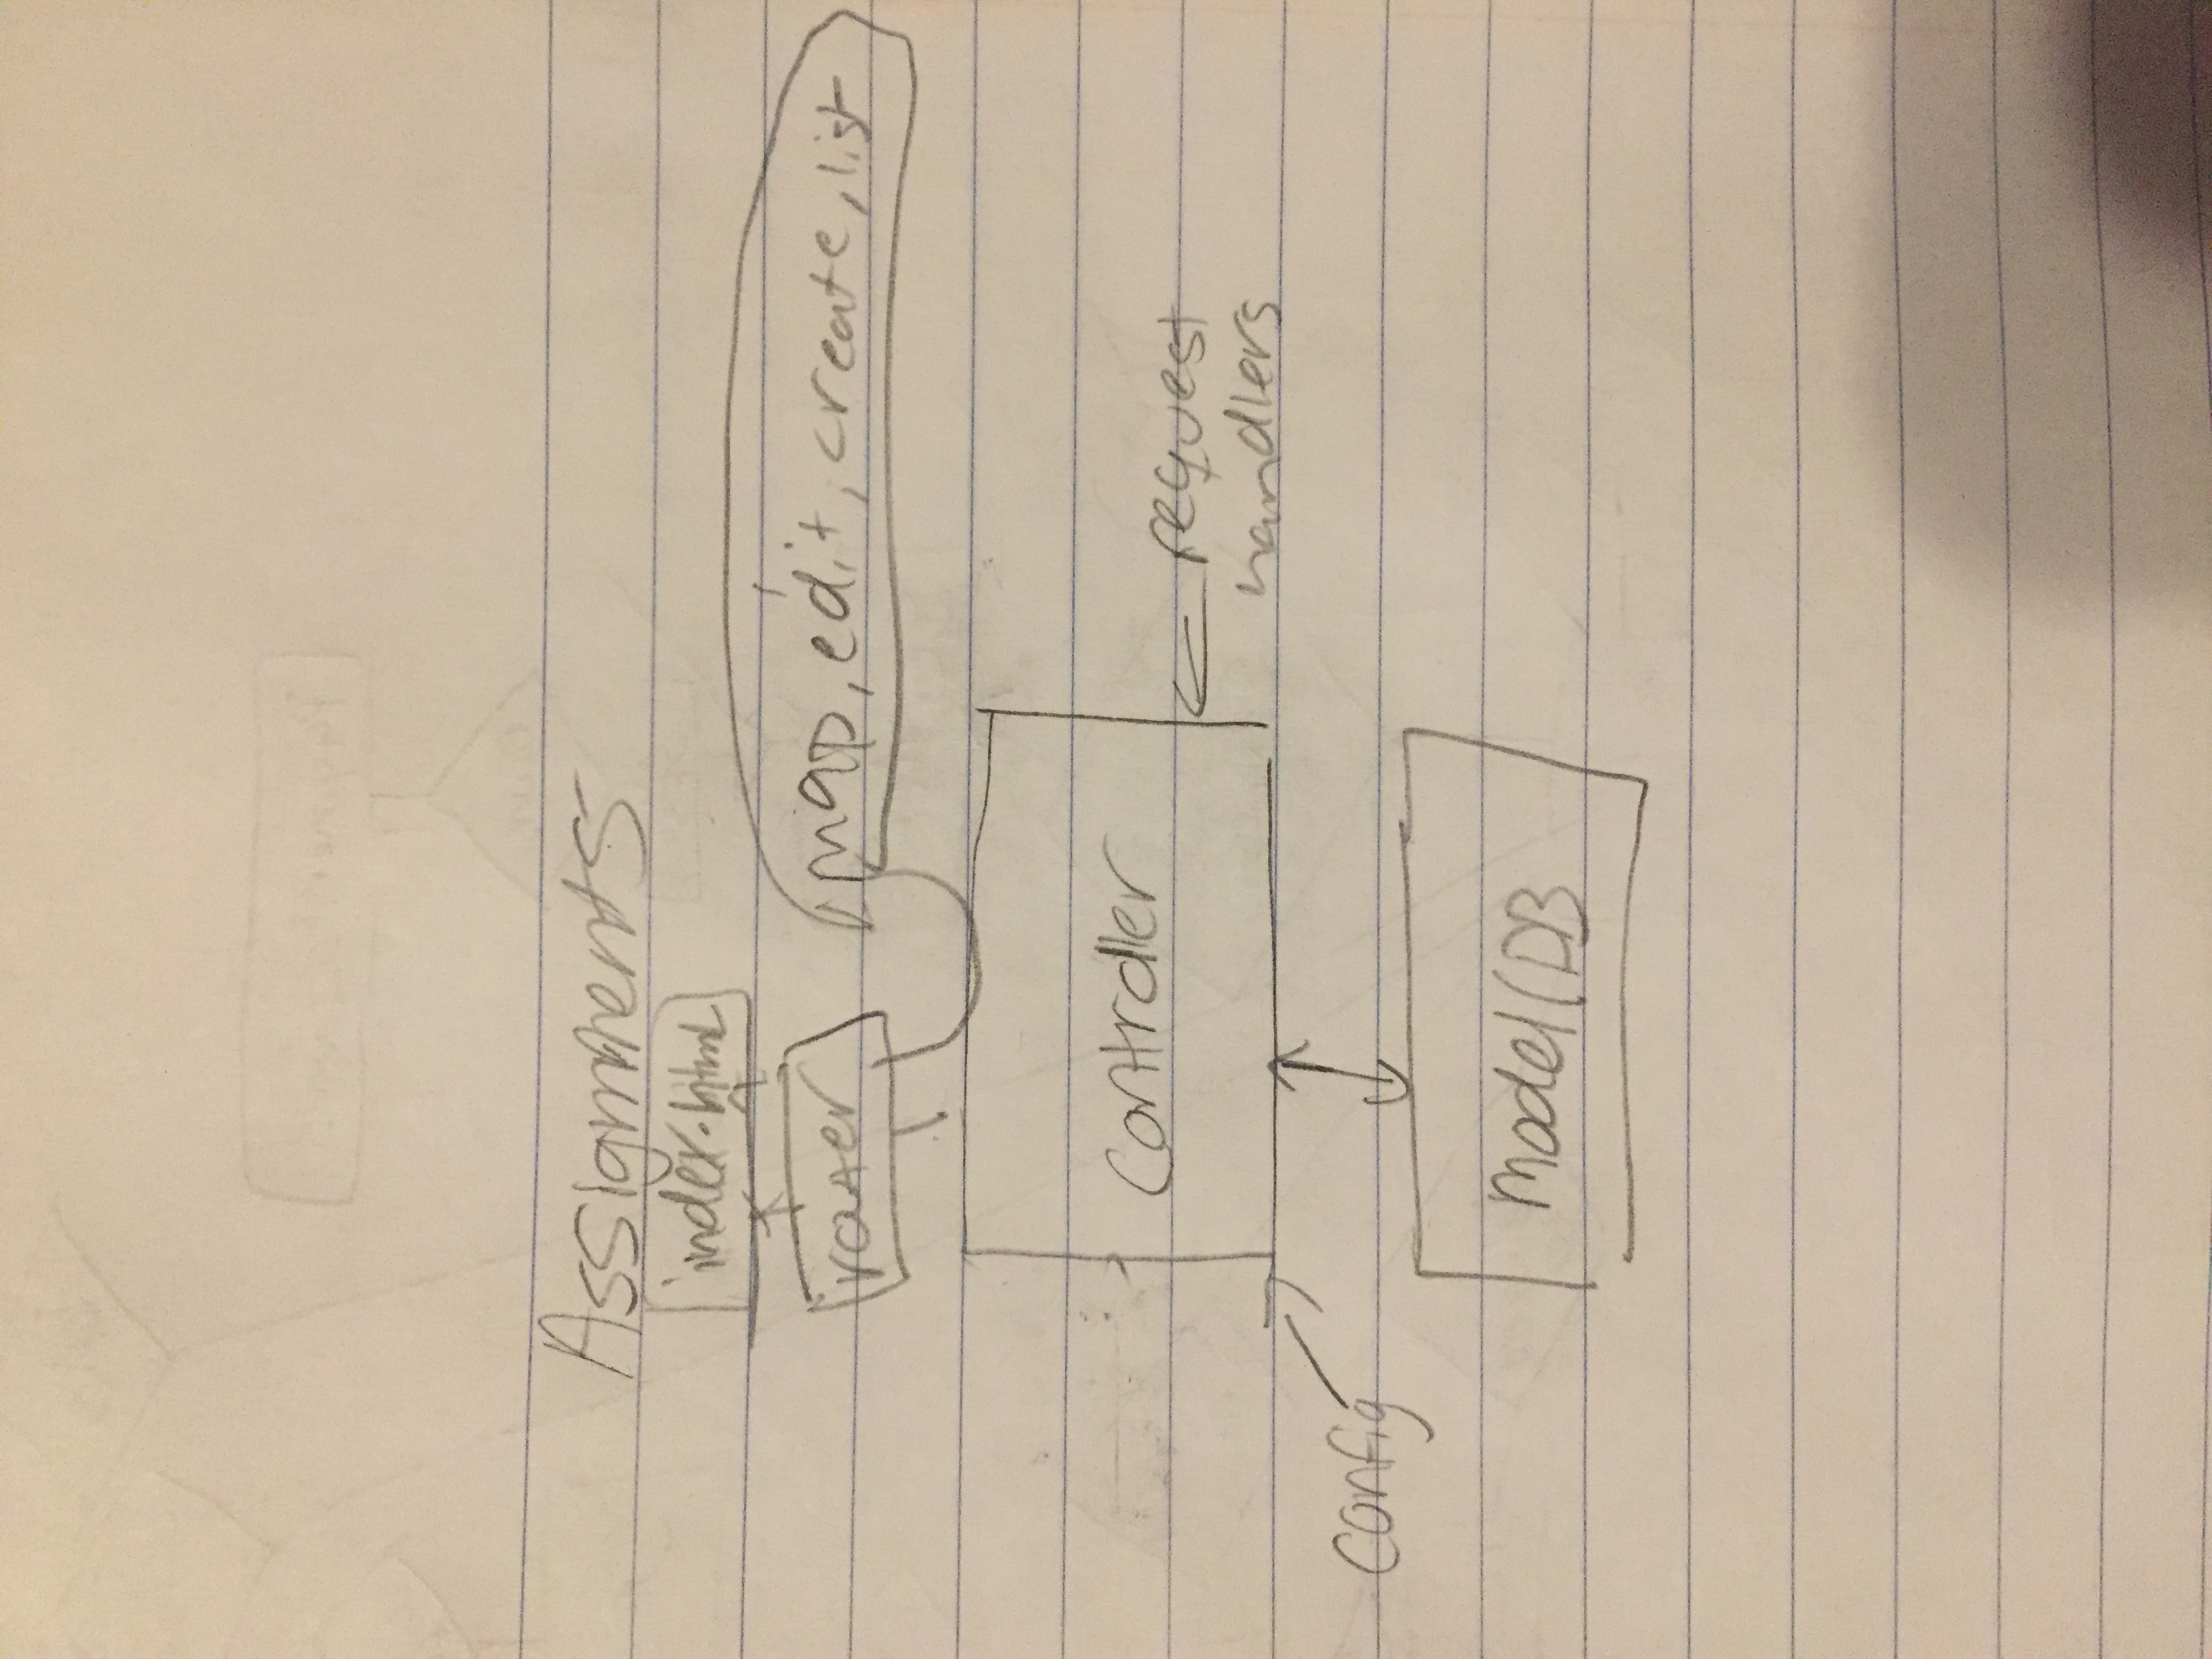 Assignments
index.html
router
map, edit, create, list
Controller
request
handlers
config
Model(DB